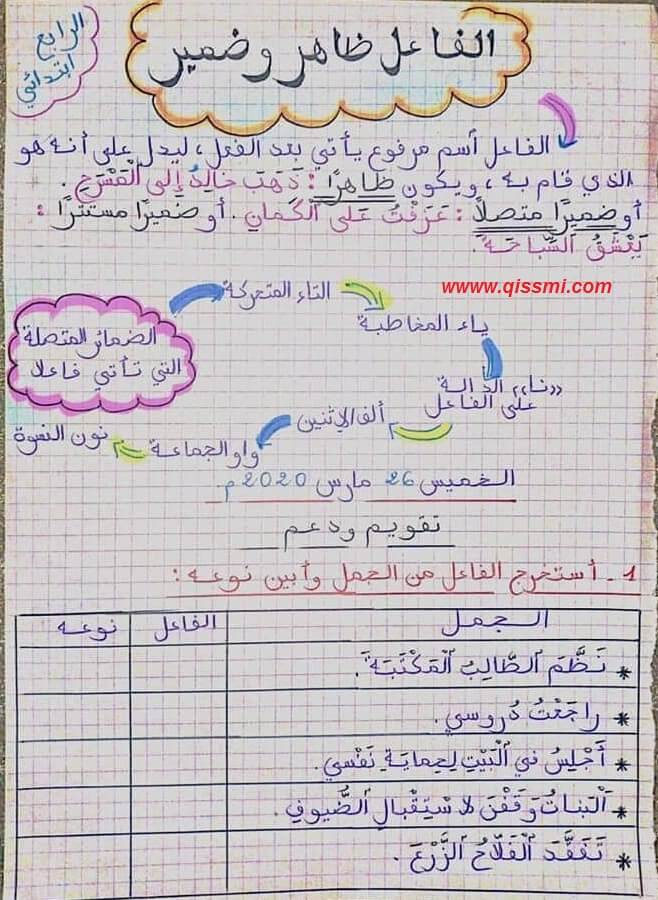 الرابع
ابتدائي
الفاعل ظاهر وضمير
الفاعل أسم مرفوع يأتي بعد الفعل، ليدل على أنه هو
الذي قام به، ويكون ظاهرًا: ذَهَبَ خَالِدٌ إِلَى ٱلْمَسْرَحِ.
أو ضميرًا متصلاً: عَزَفْتُ عَلَى الْكَمانِ. أو ضميرًا مستترًا:
يَعْشَقُ ٱلسِّبَاحَةَ.
www.qissmi.com
الضمائر المتصلة
التي تأتي فاعلا
التاء المتحركة
ياء المخاطبة
«نا» الدالة
على الفاعل
ألف الإثنين
واو الجماعة
نون النسوة
الخميس 26 مارس 2020م.
تقويم ودعم
1 - أستخرج الفاعل من الجمل وأبين نوعه:
الجمل الفاعل نوعه
* نَظَّمَ ٱلطَّالِبُ ٱلْمَكْتَبَةَ.
* راجَعْتُ دُروسي.
* أَجْلِسُ في ٱلْبَيْتِ لِحِمايَةِ نَفْسي.
* ٱلْبَناتُ وَقَفْنَ لاسْتِقْبالِ ٱلضُّيوفِ.
* تَفَقَّدَ ٱلْفَلّاحُ ٱلزَّرْعَ.